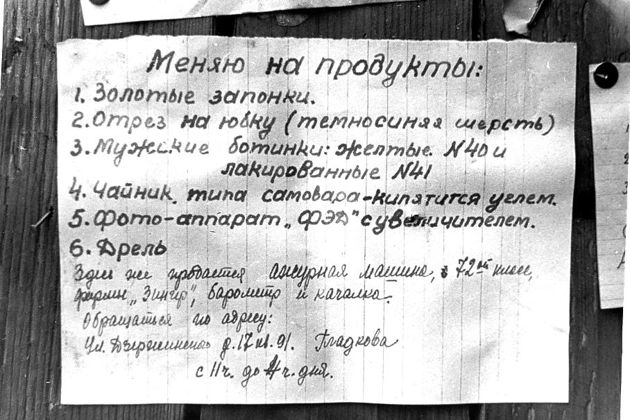 Меняю на продукты:
1. Золотые запонки.
2. Отрез на юбку (темносиняя шерсть)
3. Мужские ботинки: желтые N40 и
лакированные N41
4. Чайник типа самовара - кипятится углем.
5. Фото-аппарат „ФЭД" с увеличителем.
6. Дрель
Здесь же продается ажурная машина, 72ой класс,
фирмы „Зингер", барометр и качалка.
Обращаться по адресу:
Ул. Дзержинского д. 17 кв. 91. Гладкова
с 11 ч. до 4 ч. дня.